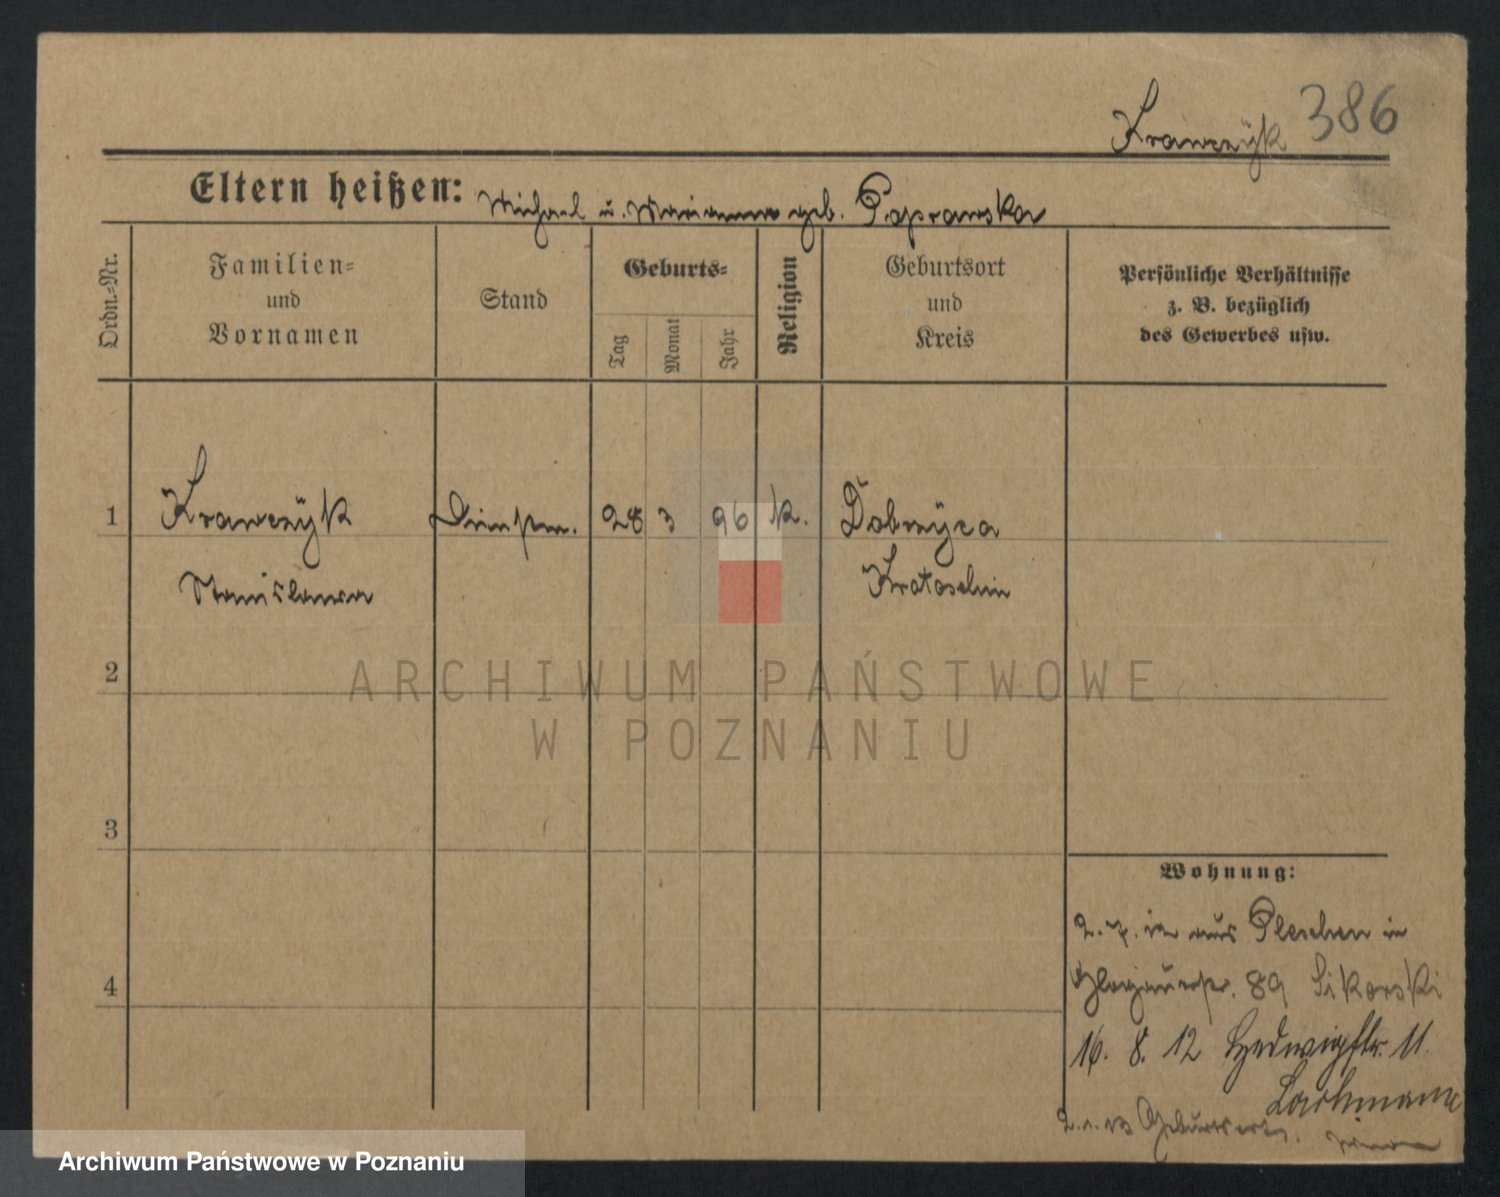 Krawczÿk 386
Eltern heißen: Michael u. Marianna geb. Poprawska
Ordn.-Nr.
Familien-
und
Vornamen
Stand
Geburts-
Tag
Monat
Jahr
Religion
Geburtsort
und
Kreis
Persönliche Verhältnisse
z. B. bezüglich
des Gewerbes usw.
1 Krawczÿk Dienstm. 28 3 96 k. Dobrzÿca
Stanislawa Krotoschin
2
3
4
Wohnung:
2. 7. 12 aus Pleschen in
Glogauerstr. 89 Sikorski
16. 8. 12 Hedwigstr. 11
Lachmann
2. 1. 13 Geburtsort
ARCHIWUM PAŃSTWOWE
W POZNANIU
Archiwum Państwowe w Poznaniu